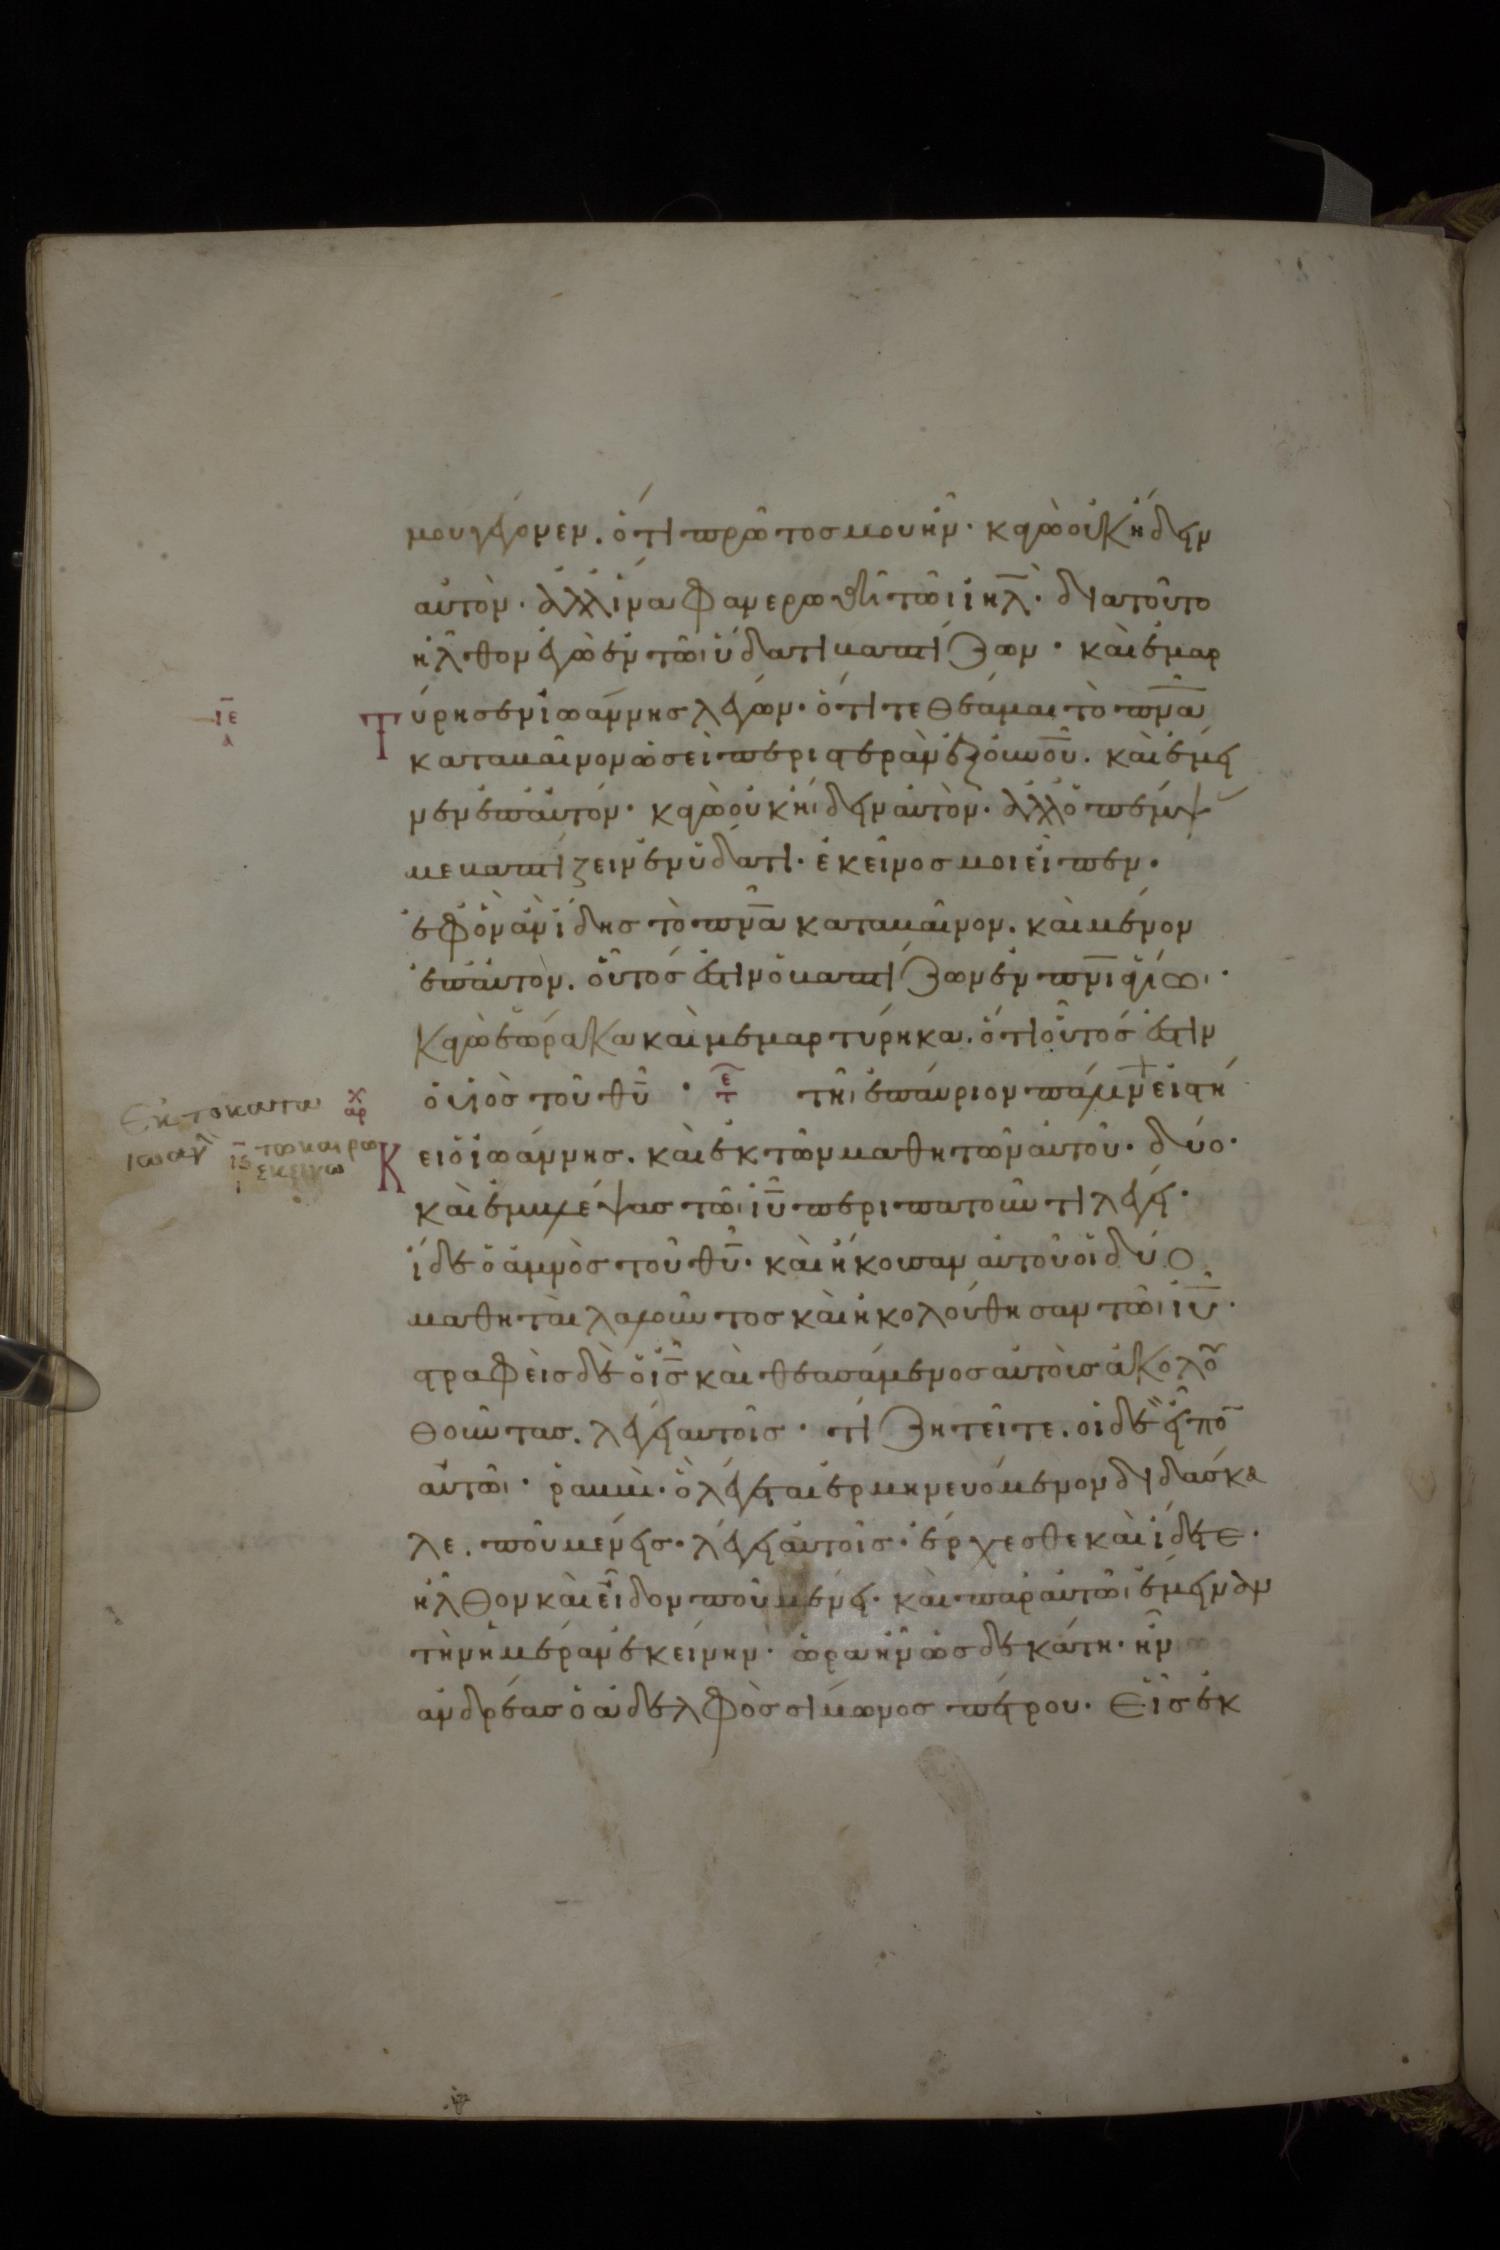 μου γέγονεν. ὅτι πρῶτοσ μου ἦν· κἀγὼ οὐκ ἤδειν
αὐτὸν· ἀλλ' ἵνα φανερωθῆ τῶι ἰηλ̅· διατοῦτο
ἦλθον ἐγὼ ἐν τῶι ὕδατι βαπτίζων· καὶ ἐμαρ
τύρησεν ἰωάννησ λέγων· ὅτι τεθέαμαι τὸ πν̅α
καταβαῖνον ὡσεὶ περιστερὰν ἐξ οὐν̅ου̅. καὶ ἔμει
νεν ἐπ' αὐτόν· κἀγὼ οὐκ ἤιδειν αὐτὸν· ἀλλ' ὁ πέμψ
με βαπτίζειν ἐν ὕδατι· ἐκεῖνοσ μοι εἶπεν·
ἐφ' ὃν ἂν ἴδησ τὸ πν̅α καταβαῖνον. καὶ μένον
ἐπ' αὐτον. οὗτόσ ἐστιν ὁ βαπτίζων ἐν πν̅ι ἁγίωι·
Κἀγὼ ἑώρακα καὶ μεμαρτύρηκα. ὅτι οὗτόσ ἐστιν
ὁ υἱὸσ τοῦ θυ̅ · ε τ τῆι ἐπαύριον πάλιν εἱστή
κει ὁ ἰωάννησ. καὶ ἐκ τῶν μαθητῶν αὐτοῦ· δύο·
καὶ ἐμβλέψασ τῶι ιυ̅ περιπατοῦντι λέγει·
ἴδε ὁ ἀμνὸσ τοῦ θυ̅· καὶ ἤκουσαν αὐτοῦ οἱ δύο
μαθηταὶ λαλοῦντοσ καὶ ἠκολούθησαν τῶι ιυ̅·
στραφεὶσ δὲ ὁ ισ̅ καὶ θεασάμενοσ αὐτοὺσ ἀκολου
θοῦντασ. λέγει αυτοῖσ· τί ζητεῖτε. οἱ δὲ εἶπον
αὐτῶι· ῥαββὶ· ὃ λέγεται ἑρμηνευόμενον διδάσκα
λε. ποῦ μένεισ· λέγει αὐτοῖσ· ἔρχεσθε καὶ ἴδετε·
ἦλθον καὶ εἶδον ποῦ μένει· καὶ παρ' αὐτῶι ἔμειναν
τὴν ἡμέραν ἐκείνην· ὥρα ἦν ὡσ δεκάτη· ἦν
ἀνδρέασ ὁ ἀδελφὸσ σίμωνοσ πέτρου. εἷσ ἐκ
ιε̅
λ
Εκ του κατα
ιωαν
χ
αρ
ις̅
ι
τω καιρω
εκεινω